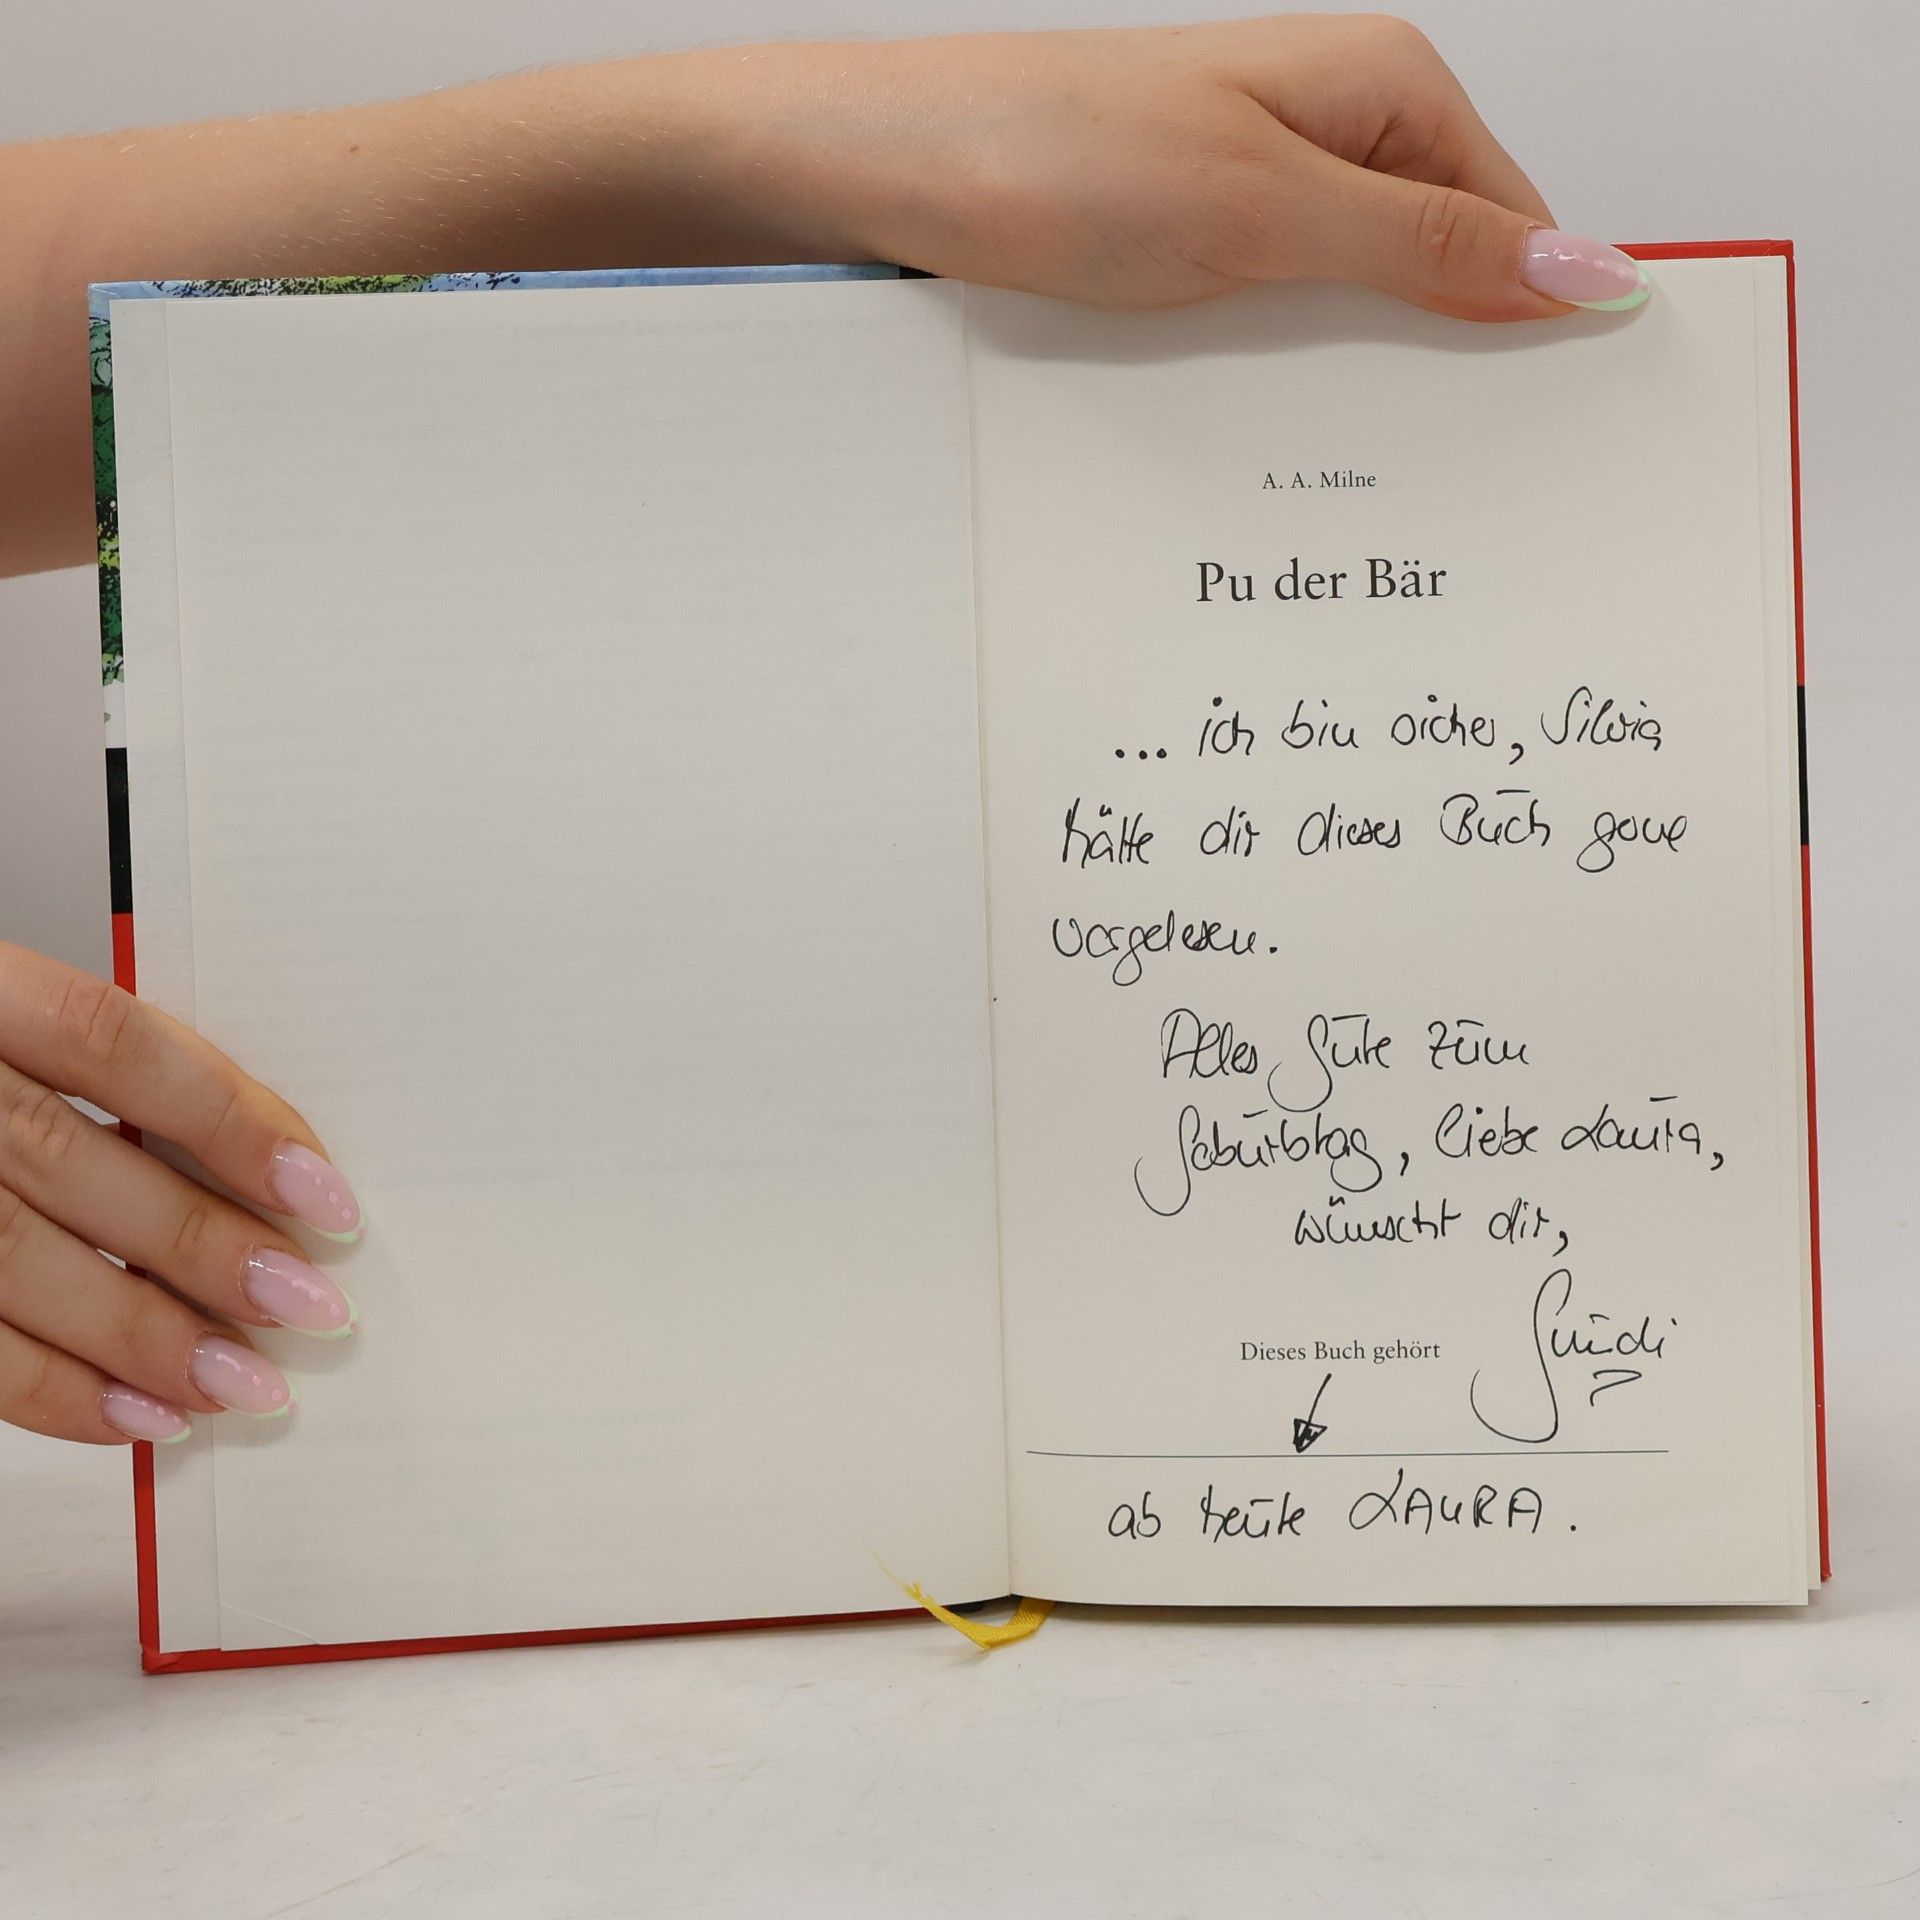 A. A. Milne
Pu der Bär
... ich bin sicher, Silvia
hätte dir dieses Buch gerne
vorgelesen.
Alles Gute zum
Geburtstag, liebe Laura,
wünscht dir,
Dieses Buch gehört
ab heute LAURA.